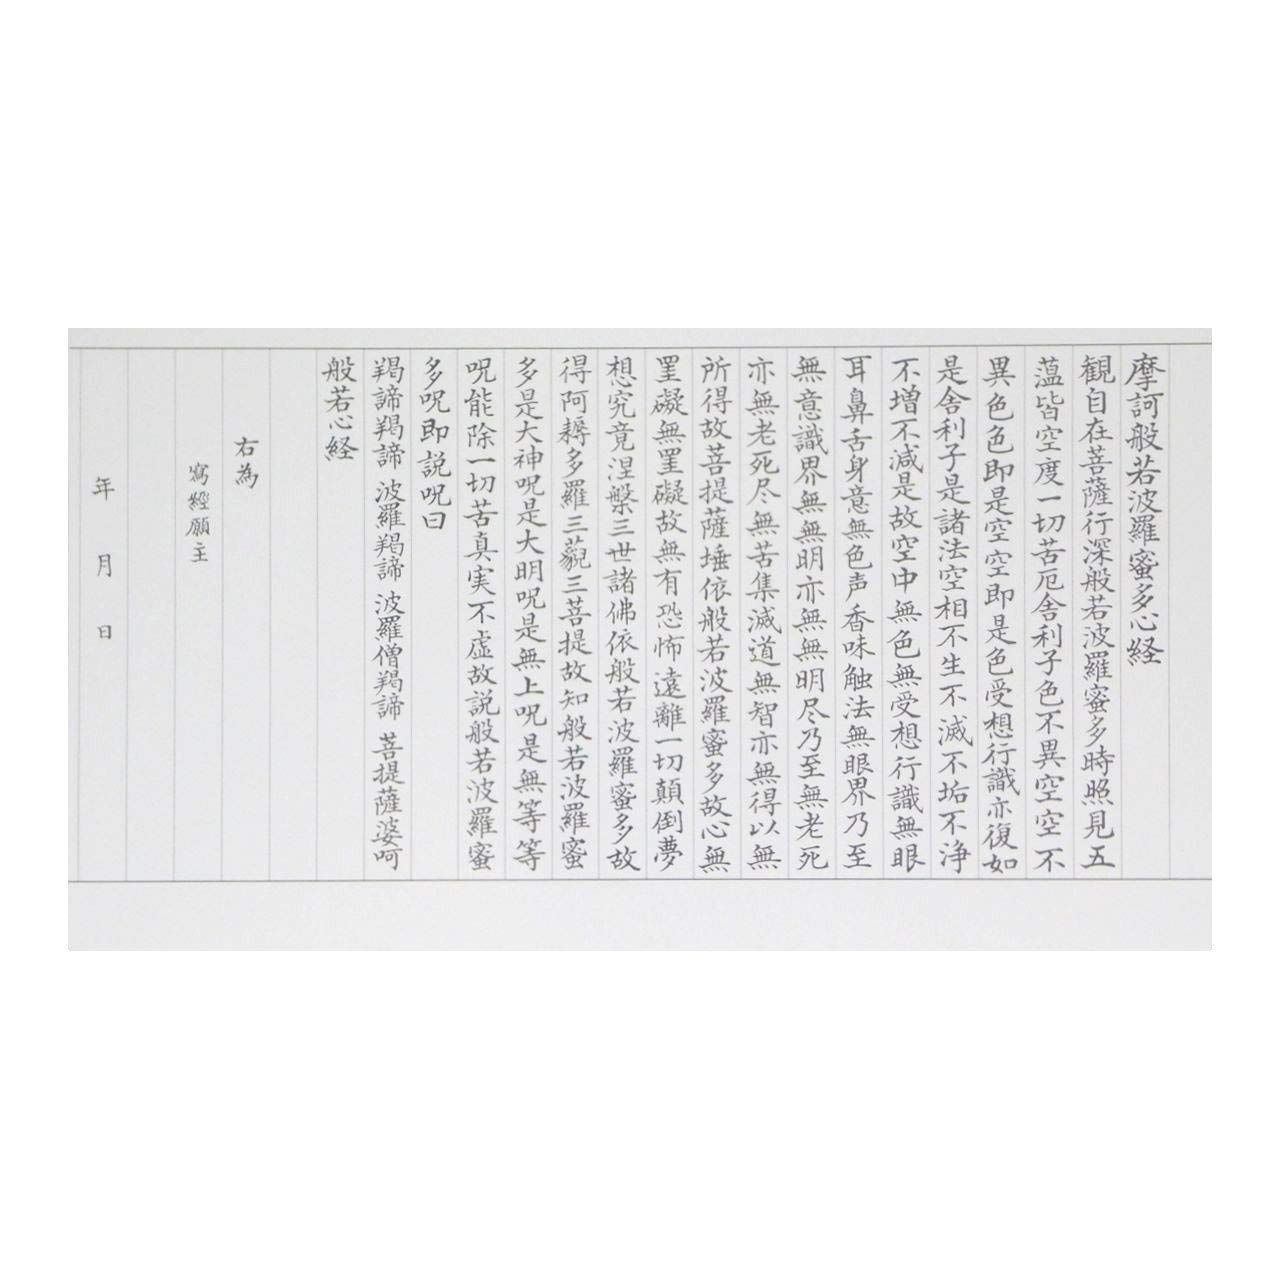 摩訶般若波羅蜜多心経
観自在菩薩行深般若波羅蜜多時照見五
薀皆空度一切苦厄舎利子色不異空空不
異色色即是空空即是色受想行識亦復如
是舎利子是諸法空相不生不滅不垢不浄
不増不減是故空中無色無受想行識無眼
耳鼻舌身意無色声香味触法無眼界乃至
無意識界無無明亦無無明尽乃至無老死
亦無老死尽無苦集滅道無智亦無得以無
所得故菩提薩埵依般若波羅蜜多故心無
罣礙無罣礙故無有恐怖遠離一切顛倒夢
想究竟涅槃三世諸佛依般若波羅蜜多故
得阿耨多羅三藐三菩提故知般若波羅蜜
多是大神呪是大明呪是無上呪是無等等
呪能除一切苦真実不虚故説般若波羅蜜
多呪即説呪曰
羯諦羯諦 波羅羯諦 波羅僧羯諦 菩提薩婆呵
般若心経
右為
寫經願主
年 月 日